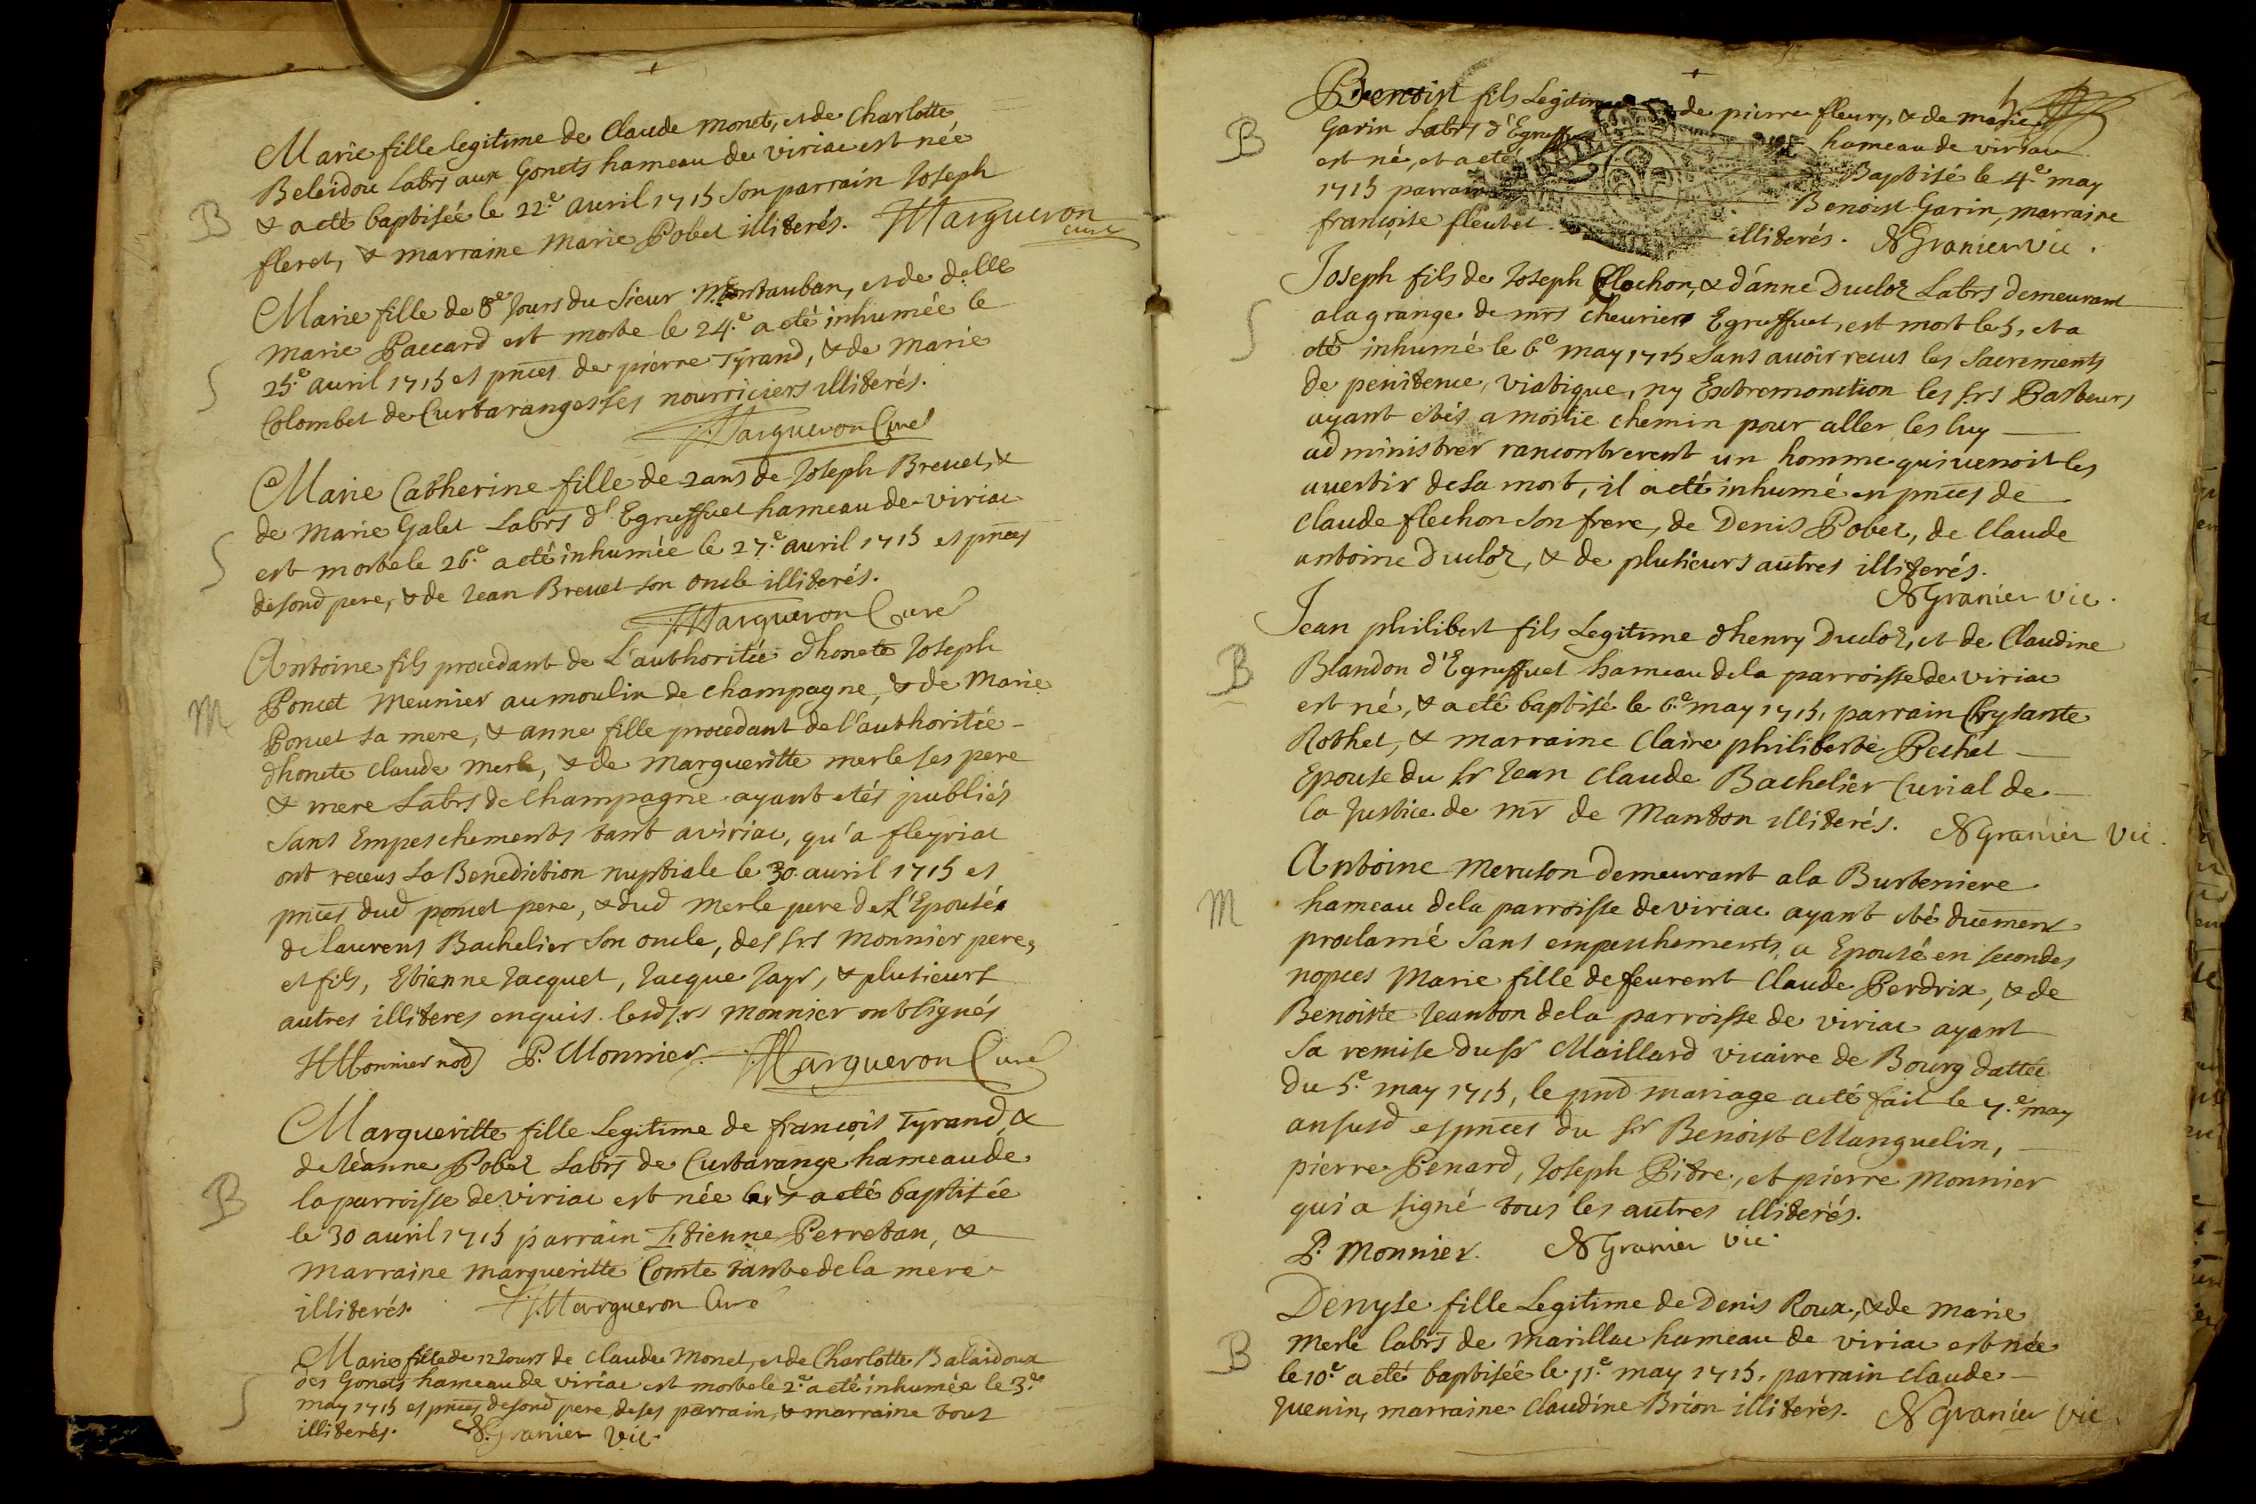 Marie fille legitime de Claude monet, et de Charlotte
Beleidou Labrs aux Gonets hameau de viriac est née
B
& a eté baptisée le 22.e avril 1715 son parrain Joseph
fleret, & marraine Marie Pobel illiterés. Margueron
curé
Marie fille de 8e Jours du sieur Montauban, et de delle
Marie Paccard est morte le 24.e a eté inhumée le
S
25.e avril 1715 es pnces de pierre Tyrand, & de Marie
Colombet de Curtaranges ses nourriciers illiterés.
Margueron Curé
Marie Catherine fille de 2 ans de Joseph Brevet, &
de Marie Galet Labrs d'Egreffuet hameau de viriac
S
est morte le 26.e a eté inhumée le 27.e avril 1715 es pnces
de sond pere, & de Jean Brevet son oncle illiterés.
Margueron Curé
Antoine fils procedant de L'authoritée d'honete Joseph
M
Poncet Meunier au moulin de champagne, & de Marie
Poncet sa mere, & anne fille procedant de l'authoritée
d'honete Claude Merle, & de Margueritte merle ses pere
& mere Labrs de Champagne ayant etés publiés
sans Empeschements tant a viriac, qu'a fleyriac
ont receus La Benediction nuptiale le 30 avril 1715 es
pnces dud poncet pere, & dud Merle pere de L'Epousée
de laurens Bachelier son oncle, des srs Monnier pere,
et fils, Etienne Jacquet, Jacque Jayr, & plusieurs
autres illiteres enquis. lesd srs Monnier ont signés
Monnier P. Monnier. Margueron Curé
Margueritte fille Legitime de françois Tyrand, &
de Jeanne Pobel Labrs de Curtarange hameau de
B
la parroisse de viriac est née & a eté baptisée
le 30 avril 1715 parrain Etienne Perretan, &
Marraine Margueritte Comte tante de la mere
illiterés. Margueron Curé
Marie fille de 12 Jours de Claude Monet, et de Charlotte Balaidoux
des Gonets hameau de viriac est morte le 2.e a eté inhumée le 3.e
S
may 1715 es pnces de sond pere, de ses parrain, & marraine tous
illiterés. Granier Vic.
5
Benoist fils Legitime de pierre fleury, & de marie
B
Garin Labrs d'Egreff hameau de viriac
est né, et a eté Baptisé le 4.e may
1715 parrain Benoist Garin, marraine
françoise fleutet illiterés. Granier Vic.
Joseph fils de Joseph flechon, & d'anne Ducloz Labrs demeurant
a la grange de mrs chevriers Egreffuet, est mort le 5, et a
S
eté inhumé le 6.e may 1715 sans avoir receus les sacrements
de penitence, viatique, ny Extremonction les srs Pasteurs
ayant etés a moitié chemin pour aller les luy
administrer rancontrerent un homme qui venoit les
avertir de sa mort, il a eté inhumé en pnces de
Claude flechon son frere, de Denis Pobel, de Claude
antoine Ducloz, & de plusieurs autres illiterés.
Granier Vic.
Jean philibert fils Legitime d'henry Ducloz, et de Claudine
B
Blandon d'Egreffuet hameau de la parroisse de viriac
est né, & a eté baptisé le 6.e may 1715, parrain Crysante
Rothet, & marraine Claire philiberte Pechet
Epouse du sr Jean Claude Bachelier Curial de
la Justice de mr de Manton illiterés. Granier Vic.
Antoine Meruson demeurant a la Burteniere
M
hameau de la parroisse de viriac ayant eté duement
proclamé sans empeschements, a Epousé en secondes
nopces Marie fille de feurent Claude Perdrix, & de
Benoiste Jeanton de la parroisse de viriac ayant
sa remise du sr Maillard vicaire de Bourg dattée
du 5.e may 1715, le pnt mariage a eté fait le 7.e may
an susd es pnces du sr Benoist Manguelin,
pierre Penard, Joseph Pitre, et pierre Monnier
qui a signé tous les autres illiterés.
P. Monnier. Granier Vic.
Denyse fille Legitime de Denis Roux, & de Marie
Merle labrs de Marillac hameau de viriac est née
B
le 10.e a eté baptisée le 11.e may 1715, parrain Claude
Juenin, marraine Claudine Brion illiterés. Granier Vic.